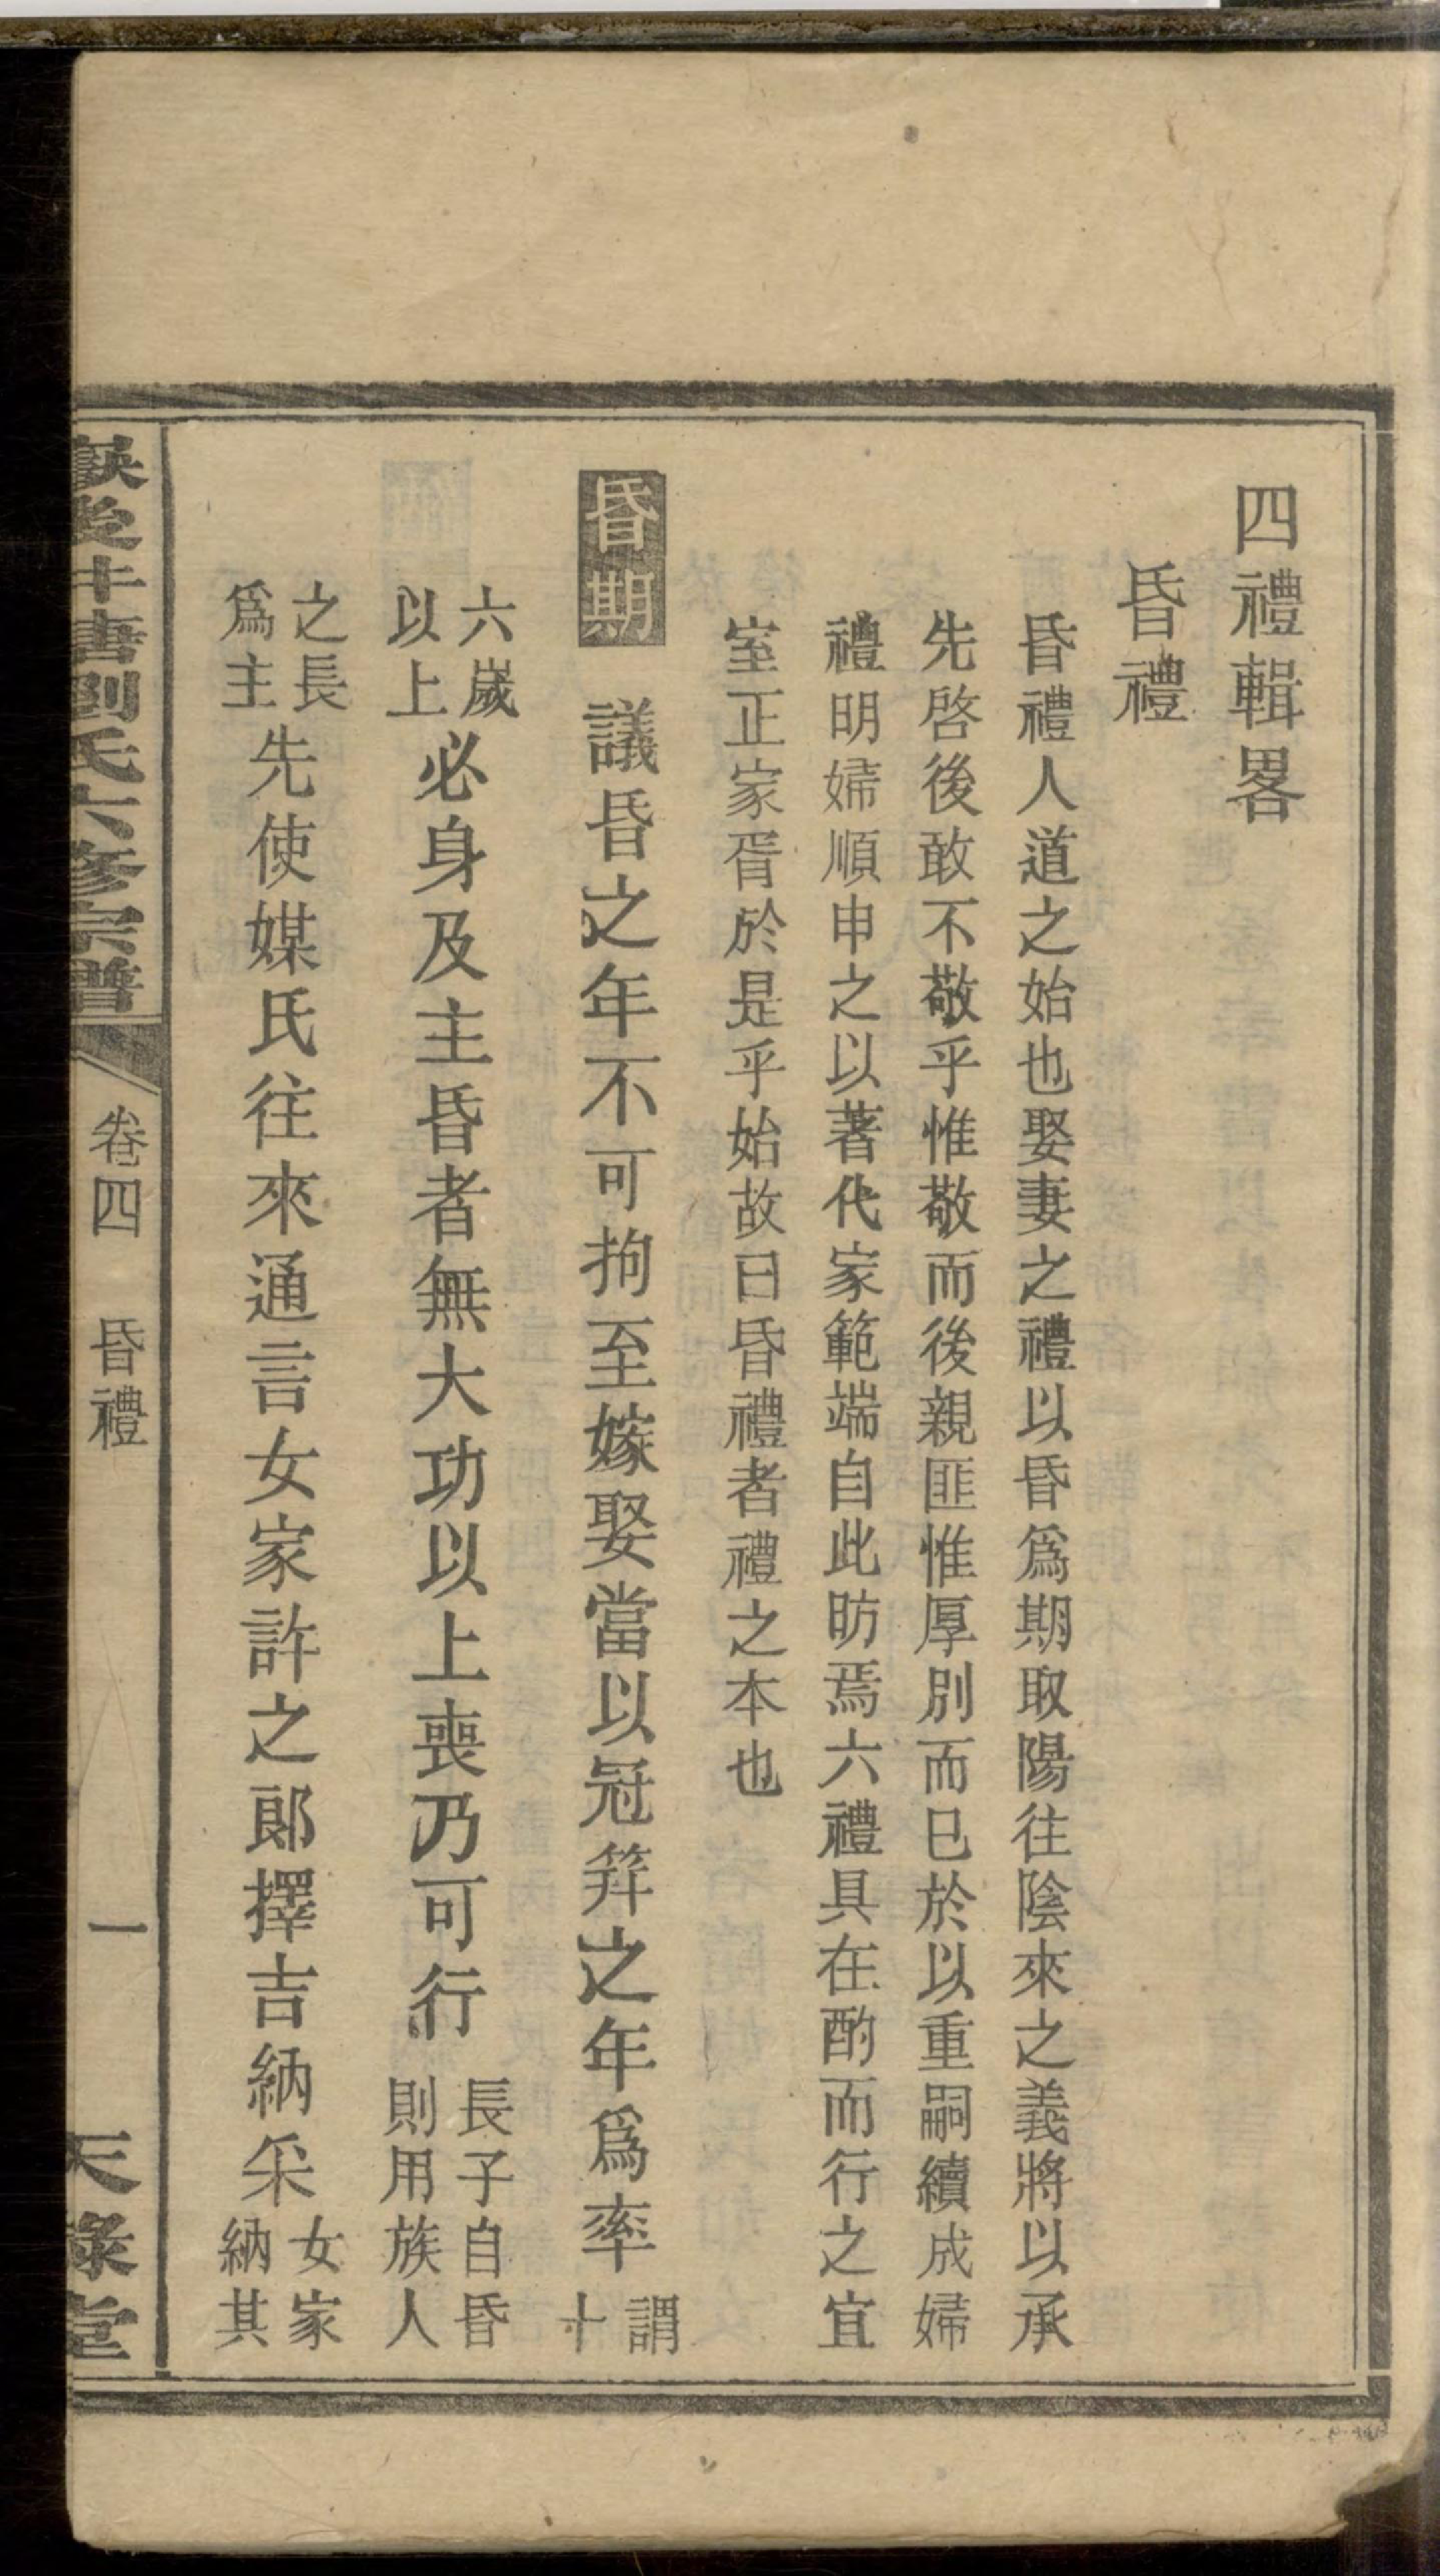 四禮輯畧
昏禮
昏禮人道之始也娶妻之禮以昏爲期取陽往陰來之義將以承
先啓後敢不敬乎惟敬而後親匪惟厚別而已於以重嗣續成婦
禮明婦順申之以著代家範端自此昉焉六禮具在酌而行之宜
室正家胥於是乎始故曰昏禮者禮之本也
昏期 議昏之年不可拘至嫁娶當以冠筓之年爲率謂十
六歲以上必身及主昏者無大功以上喪乃可行長子自昏則用族人
之長爲主先使媒氏往來通言女家許之郎擇吉納采女家納其
後牛唐劉氏六修宗譜 卷四 昏禮 一 天祿堂